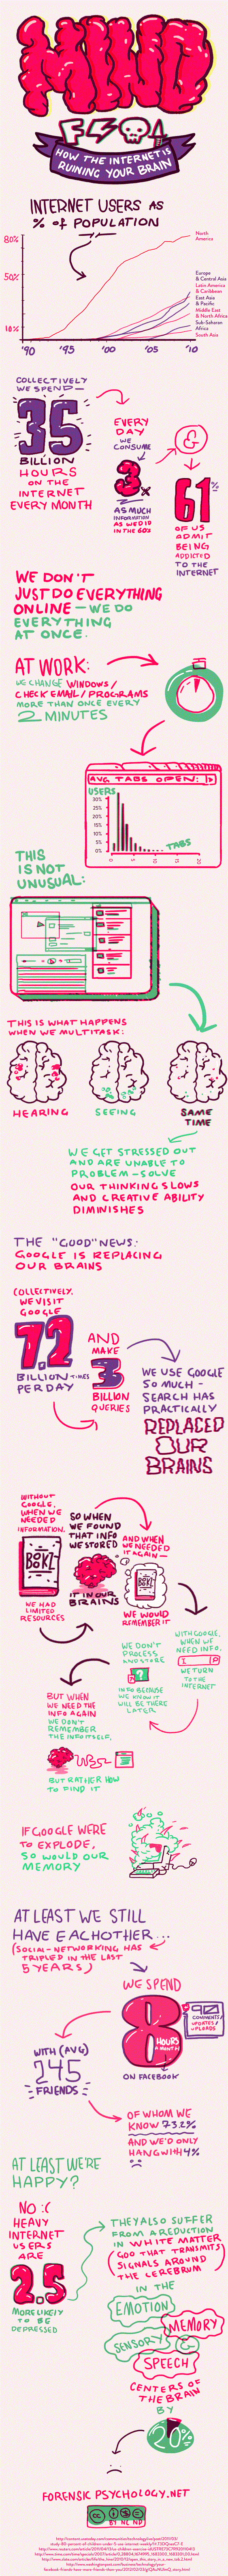 MIND
HOW THE INTERNET IS
RUINING YOUR BRAIN
INTERNET USERS AS
% of POPULATION
80%
50%
10%
'90
'95
'00
'05
'10
North
America
Europe
& Central Asia
Latin America
& Caribbean
East Asia
& Pacific
Middle East
& North Africa
Sub-Saharan
Africa
South Asia
COLLECTIVELY
WE SPEND—
35
BILLION
HOURS
ON THE
INTERNET
EVERY MONTH
EVERY
DAY
WE
CONSUME
3x
AS MUCH
INFORMATION
AS WE DID
IN THE 60s
&
61%
OF US
ADMIT
BEING
ADDICTED
TO THE
INTERNET
WE DON'T
JUST DO EVERYTHING
ONLINE — WE DO
EVERYTHING
AT ONCE.
AT WORK:
WE CHANGE WINDOWS/
CHECK EMAIL/PROGRAMS
MORE THAN ONCE EVERY
2 MINUTES
AVG. TABS OPEN:
USERS
30%
25%
20%
15%
10%
5%
0%
0
5
10
15
20
TABS
THIS
IS NOT
UNUSUAL:
THIS IS WHAT HAPPENS
WHEN WE MULTITASK:
HEARING
SEEING
SAME
TIME
WE GET STRESSED OUT
AND ARE UNABLE TO
PROBLEM-SOLVE
OUR THINKING SLOWS
AND CREATIVE ABILITY
DIMINISHES
THE "GOOD" NEWS:
GOOGLE IS REPLACING
OUR BRAINS
COLLECTIVELY,
WE VISIT
GOOGLE
7.2
BILLION TIMES
PER DAY
AND
MAKE
3
BILLION
QUERIES
WE USE GOOGLE
SO MUCH -
SEARCH HAS
PRACTICALLY
REPLACED
OUR
BRAINS
WITHOUT
GOOGLE,
WHEN WE
NEEDED
INFORMATION,
BOOK!
WE HAD
LIMITED
RESOURCES
SO WHEN
WE FOUND
THAT INFO
WE STORED
IT IN OUR
BRAINS
AND WHEN
WE NEEDED
IT AGAIN—
BOOK!
WE WOULD
REMEMBER IT
WITH GOOGLE,
WHEN WE
NEED INFO,
WE TURN
TO THE
INTERNET
WE DON'T
PROCESS
AND STORE
?
INFO BECAUSE
WE KNOW IT
WILL BE THERE
LATER
BUT WHEN
WE NEED THE
INFO AGAIN
WE DON'T
REMEMBER
THE INFO ITSELF,
BUT RATHER HOW
TO FIND IT
IF GOOGLE WERE
TO EXPLODE,
SO WOULD OUR
MEMORY
AT LEAST WE STILL
HAVE EACHOTHER...
(SOCIAL-NETWORKING HAS
TRIPLED IN THE LAST
5 YEARS)
WE SPEND
8
HOURS
A MONTH
ON FACEBOOK
90
COMMENTS/
UPDATES/
UPLOADS
WITH (AVG)
245
FRIENDS
OF WHOM WE
KNOW 73.2%
AND WE'D ONLY
HANG WITH 4%
AT LEAST WE'RE
HAPPY?
NO :(
HEAVY
INTERNET
USERS
ARE
2.5
MORE LIKELY
TO BE
DEPRESSED
THEY ALSO SUFFER
FROM A REDUCTION
IN WHITE MATTER
(GOO THAT TRANSMITS
SIGNALS AROUND
THE CEREBRUM)
IN THE
EMOTION
MEMORY
SENSORY
&
SPEECH
CENTERS OF
THE BRAIN
BY
20%
FORENSIC PSYCHOLOGY.NET
CC
BY NC ND